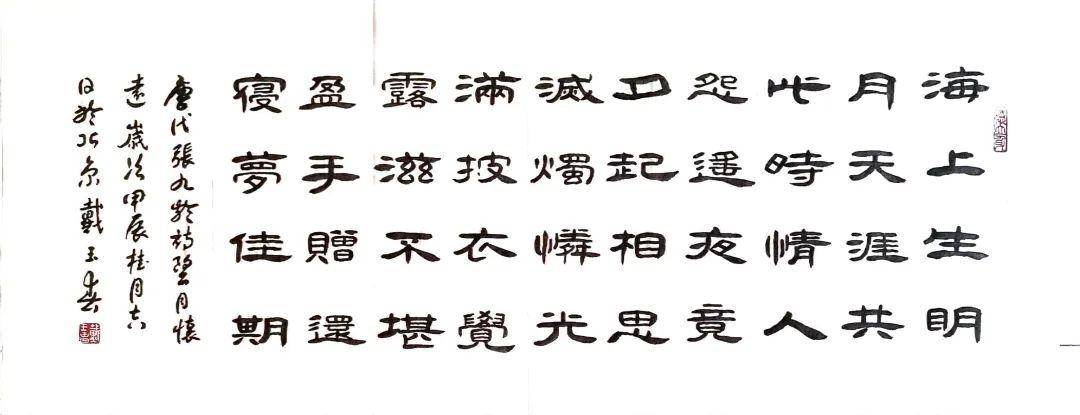 海上生明
月天涯共
此時情人
怨遙夜竟
夕起相思
滅燭憐光
滿披衣覺
露滋不堪
盈手贈還
寢夢佳期
唐代張九齡詩望月懷
遠歲次甲辰桂月吉
日於北京戴玉春